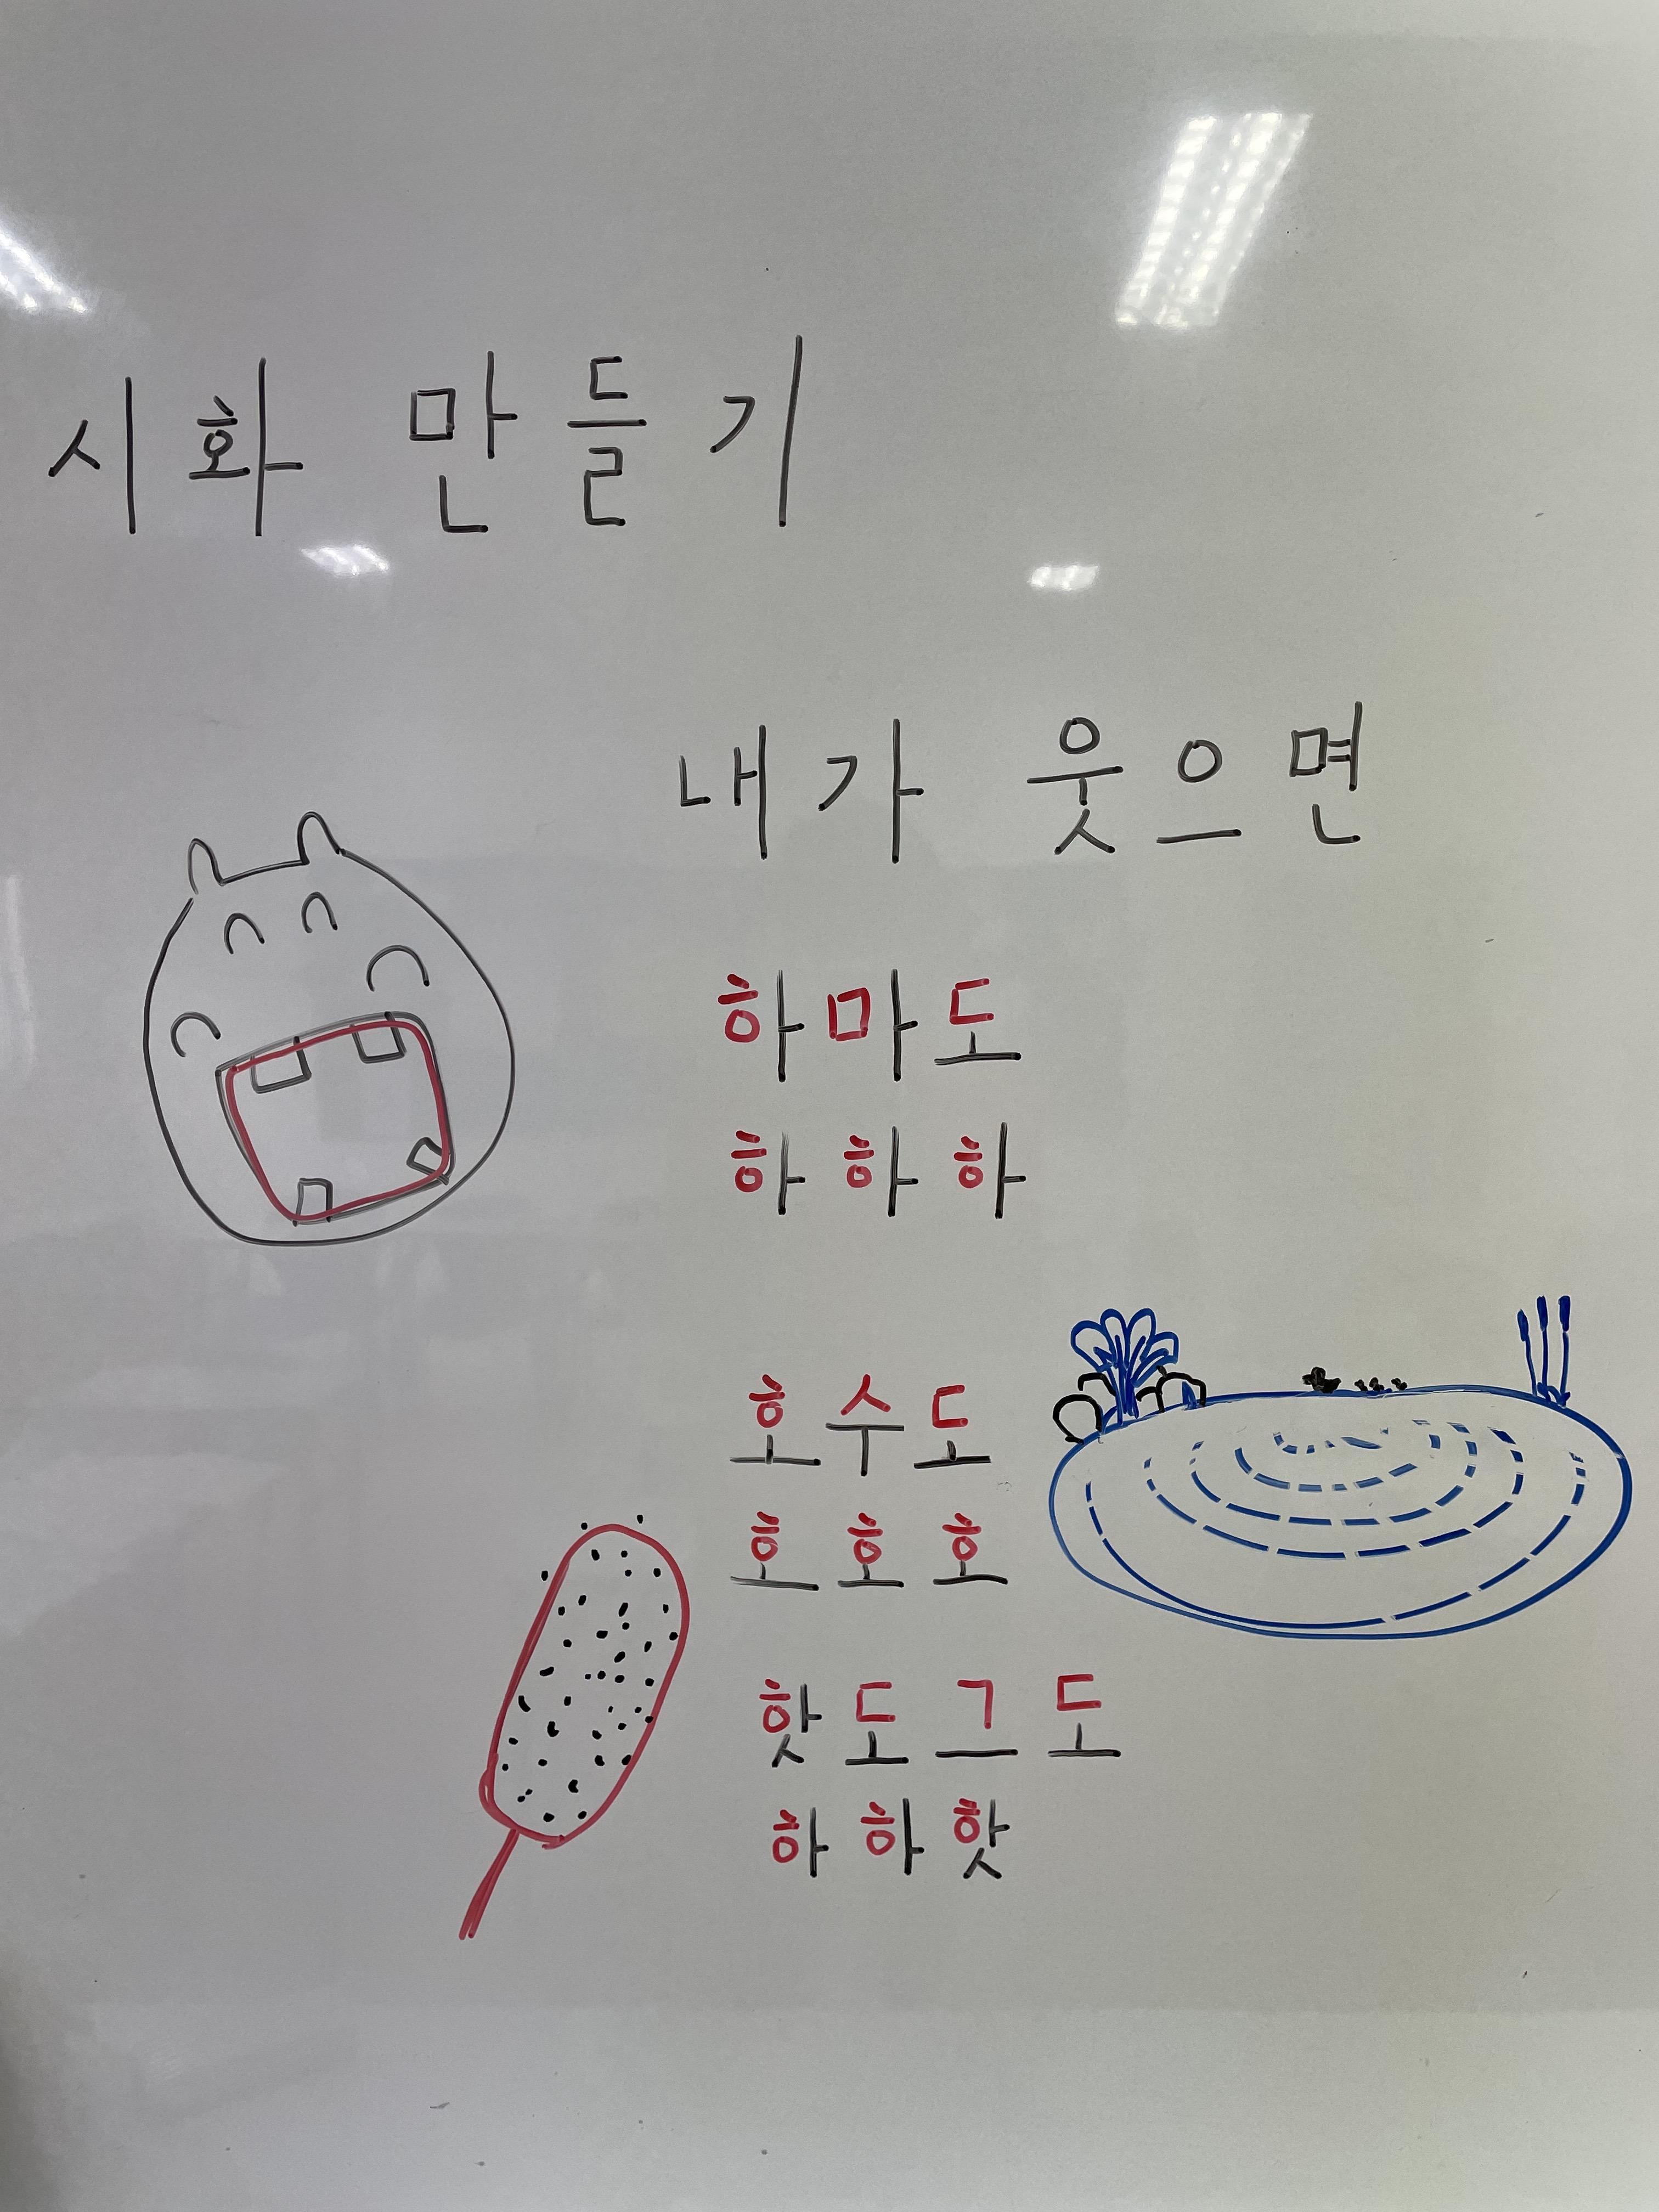 시화 만들기
내가 웃으면
하마도
하하하
호수도
호호호
핫도그도
하하핫